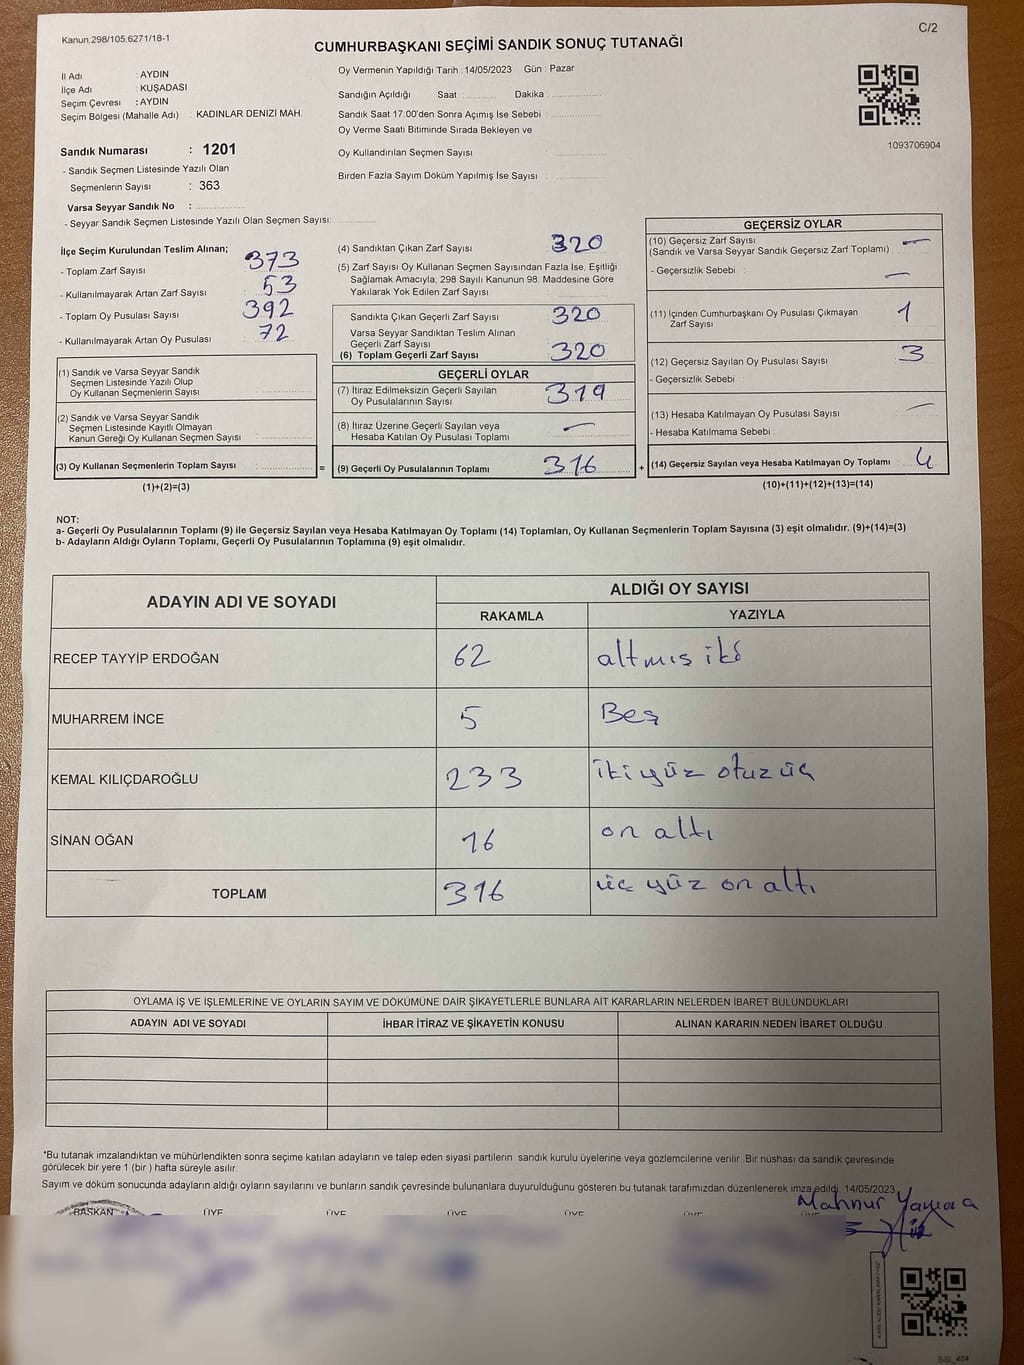 Kanun;298/105;6271/18-1
C/2
CUMHURBAŞKANI SEÇİMİ SANDIK SONUÇ TUTANAĞI
İl Adı : AYDIN
İlçe Adı : KUŞADASI
Seçim Çevresi : AYDIN
Seçim Bölgesi (Mahalle Adı) : KADINLAR DENİZİ MAH
Sandık Numarası : 1201
- Sandık Seçmen Listesinde Yazılı Olan
Seçmenlerin Sayısı : 363
Varsa Seyyar Sandık No :
- Seyyar Sandık Seçmen Listesinde Yazılı Olan Seçmen Sayısı:
Oy Vermenin Yapıldığı Tarih : 14/05/2023 Gün : Pazar
Sandığın Açıldığı Saat : Dakika :
Sandık Saat 17:00'den Sonra Açımış İse Sebebi :
Oy Verme Saati Bitiminde Sırada Bekleyen ve
Oy Kullandırılan Seçmen Sayısı :
Birden Fazla Sayım Döküm Yapılmış İse Sayısı :
1093706904
İlçe Seçim Kurulundan Teslim Alınan;
- Toplam Zarf Sayısı 373
- Kullanılmayarak Artan Zarf Sayısı 53
- Toplam Oy Pusulası Sayısı 392
- Kullanılmayarak Artan Oy Pusulası 72
(1) Sandık ve Varsa Seyyar Sandık
Seçmen Listesinde Yazılı Olup
Oy Kullanan Seçmenlerin Sayısı :
(2) Sandık ve Varsa Seyyar Sandık
Seçmen Listesinde Kayıtlı Olmayan
Kanun Gereği Oy Kullanan Seçmen Sayısı :
(3) Oy Kullanan Seçmenlerin Toplam Sayısı : =
(1)+(2)=(3)
(4) Sandıktan Çıkan Zarf Sayısı 320
(5) Zarf Sayısı Oy Kullanan Seçmen Sayısından Fazla İse, Eşitliği
Sağlamak Amacıyla, 298 Sayılı Kanunun 98. Maddesine Göre
Yakılarak Yok Edilen Zarf Sayısı :
Sandıkta Çıkan Geçerli Zarf Sayısı 320
Varsa Seyyar Sandıktan Teslim Alınan
Geçerli Zarf Sayısı :
(6) Toplam Geçerli Zarf Sayısı 320
GEÇERLİ OYLAR
(7) İtiraz Edilmeksizin Geçerli Sayılan
Oy Pusulalarının Sayısı 319
(8) İtiraz Üzerine Geçerli Sayılan veya
Hesaba Katılan Oy Pusulası Toplamı —
(9) Geçerli Oy Pusulalarının Toplamı 316 +
GEÇERSİZ OYLAR
(10) Geçersiz Zarf Sayısı —
(Sandık ve Varsa Seyyar Sandık Geçersiz Zarf Toplamı)
- Geçersizlik Sebebi : —
(11) İçinden Cumhurbaşkanı Oy Pusulası Çıkmayan
Zarf Sayısı 1
(12) Geçersiz Sayılan Oy Pusulası Sayısı 3
- Geçersizlik Sebebi :
(13) Hesaba Katılmayan Oy Pusulası Sayısı —
- Hesaba Katılmama Sebebi :
(14) Geçersiz Sayılan veya Hesaba Katılmayan Oy Toplamı : 4
(10)+(11)+(12)+(13)=(14)
NOT:
a- Geçerli Oy Pusulalarının Toplamı (9) ile Geçersiz Sayılan veya Hesaba Katılmayan Oy Toplamı (14) Toplamları, Oy Kullanan Seçmenlerin Toplam Sayısına (3) eşit olmalıdır. (9)+(14)=(3)
b- Adayların Aldığı Oyların Toplamı, Geçerli Oy Pusulalarının Toplamına (9) eşit olmalıdır.
ADAYIN ADI VE SOYADI
ALDIĞI OY SAYISI
RAKAMLA YAZIYLA
RECEP TAYYİP ERDOĞAN 62 altmış iki
MUHARREM İNCE 5 Beş
KEMAL KILIÇDAROĞLU 233 ikiyüz otuz üç
SİNAN OĞAN 16 on altı
TOPLAM 316 üç yüz on altı
OYLAMA İŞ VE İŞLEMLERİNE VE OYLARIN SAYIM VE DÖKÜMÜNE DAİR ŞİKAYETLERLE BUNLARA AİT KARARLARIN NELERDEN İBARET BULUNDUKLARI
ADAYIN ADI VE SOYADI İHBAR İTİRAZ VE ŞİKAYETİN KONUSU ALINAN KARARIN NEDEN İBARET OLDUĞU
*Bu tutanak imzalandıktan ve mühürlendikten sonra seçime katılan adayların ve talep eden siyasi partilerin sandık kurulu üyelerine veya gözlemcilerine verilir. Bir nüshası da sandık çevresinde
görülecek bir yere 1 (bir ) hafta süreyle asılır.
Sayım ve döküm sonucunda adayların aldığı oyların sayılarını ve bunların sandık çevresinde bulunanlara duyurulduğunu gösteren bu tutanak tarafımızdan düzenlenerek imza edildi. 14/05/2023
Mahnur
BAŞKAN ÜYE ÜYE ÜYE ÜYE